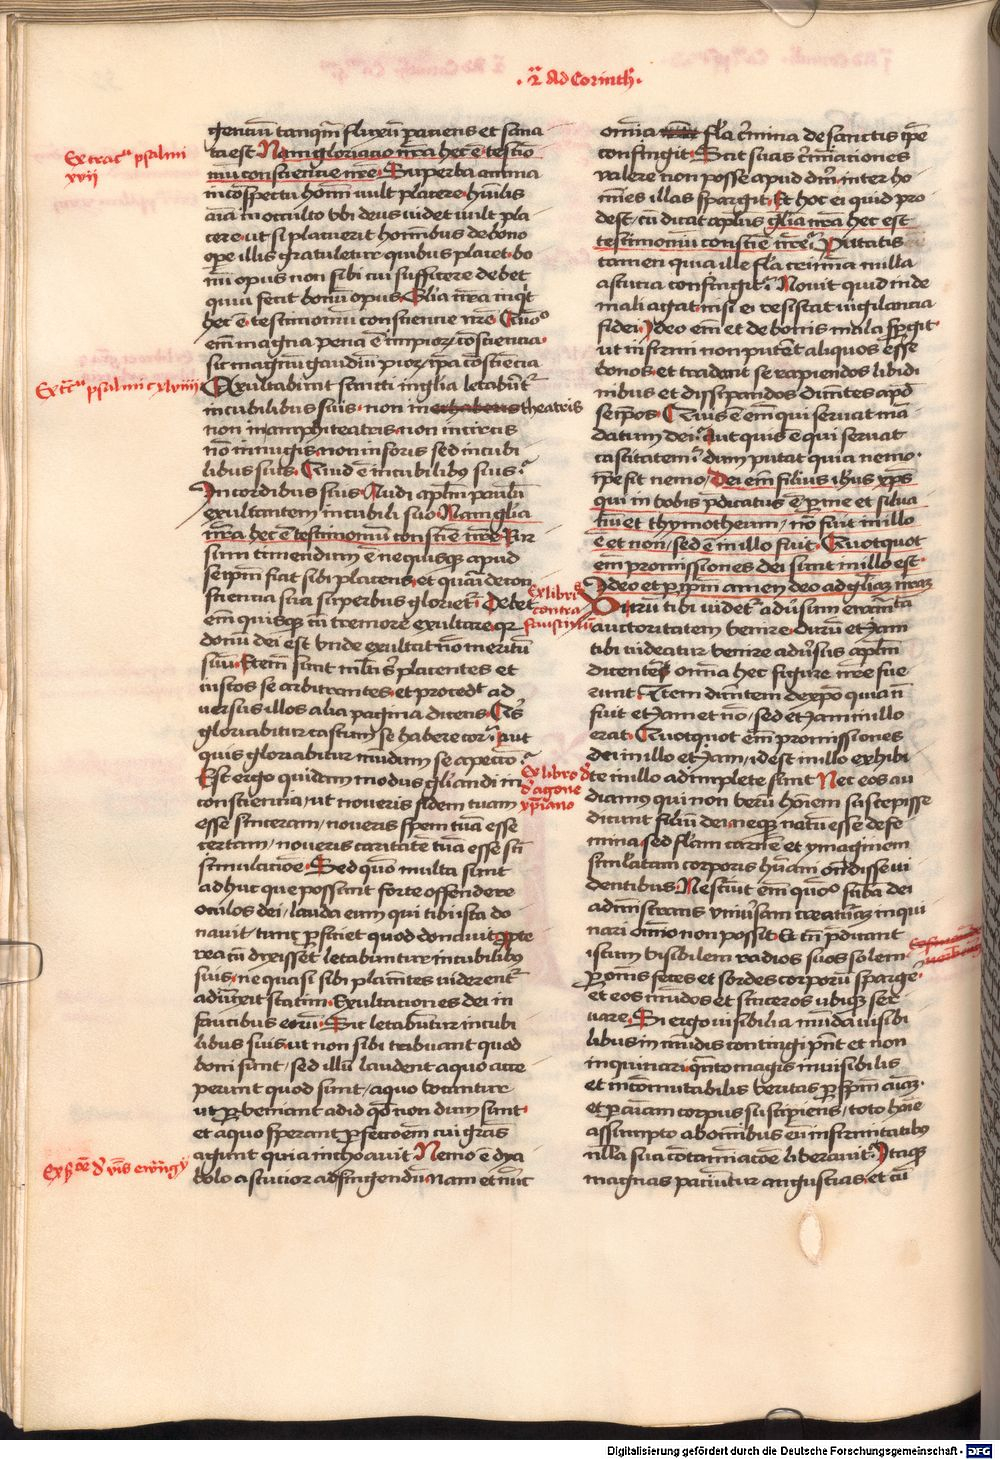 ·2ª Ad Corinth·
Ex trac.u psalmi
xvij
gentiū tanqm̄ fluxū patiens et sana
ta est· Nam gloriatio nr̄a hec ē· testīo
niu conscientie nr̄e· Superba anima
in cōspectu homī vult placere· hūilis
aīa in occulto vbi deus videt vult pla
cere· ut si placuerit hominibus de bono
ope illis gratuletur quibus placet bo
nū opus non sibi cui sufficere debet
quia fecit bonū opus· Glīa nr̄a inqt
hec ē· testimoniū conscientie nr̄e·
em̄ magna pena ē impior conscientia·
sic magnū gaudiū pior ipa cōsciēcia
Ex tc.u psalmi cxlviiij
Exultabunt sancti in glīa letabūt
in cubilibus suis· non in theatris
non in amphiteatris· non in circis
nō in nugis· non in foris sed in cubi
libus suis· Quid ē in cubilibꝫ suis·
In cordibus suis· Audi aplm̄ paulū
exultantem in cubili suo· Nam glīa
nr̄a hec ē testimoniū consciē nr̄e·
sum timendum ē nequisqꝫ apud
seipm̄ fiat sibi placens· et quasi de con
scientia sua superbus glorietr· Debet
em̄ quisqꝫ cū tremore exultare· qr
donū dei est vnde exultat nō meritū
suū· Etem̄ sunt ml̄ti s placentes et
iustos se arbitrantes· et procedt ad
uersus illos alia pagina dicens· Qis
gloriabitur castum se habere cor· aut
quis gloriabitur mūdum se a pecco·
Est ergo quidam modus glīandi in
conscientia· ut noueris fidem tuam
esse sinceram/ noueris spem tuā esse
certam/ noueris caritatē tuā esse sn̄
simulacōe· Sed quōm multa sunt
adhuc que possunt forte offendere
oculos dei/ lauda eum qui tibi ista do
nauit/ tunc perficiet quod donauit·
rea cū dixisset letabuntur in cubilibꝫ
suis· ne quasi sibi placn̄tes viderentr
adiūxit statim· Exultationes dei in
faucibus eorū· Sic letabuntur in cubi
libus suis· ut non sibi tribuant quod
boni sunt/ sed illū laudent a quo acce
perunt quod sunt/ a quo vocantur
ut perueniant ad id qd nondum sunt·
et a quo sperant perfectōem cui grās
agunt quia inchoauit· Nemo ē dya
bolo astucior ad fingendū· nam et nūc
om̄ia fl̄a c̄mina de sanctis ipe
confingit· Scit suas criminationes
valere non posse apud dm̄· inter ho
mīes illas spargit· Et hoc ei quid pro
dest/ cū dicat aplus glīa nr̄a hec est
testimoniū consciē nr̄e· Putatis
tamen quia ille fl̄a crimina nulla
astucia confingit· Nouit quid inde
mali agat· nisi ei resistat vigilancia
fidei· Ideo em̄ et de bonis mala spgit·
ut infirmi non putēt aliquos eē
bonos· et tradant se rapiendos libidi
nibus et dissipandos dicntes apd
seipos· Quis ē em̄ qui seruat mā
datum dei· aut quis ē qui seruat
castitatem· dum putat quia nemo·
ipe fit nemo/ Dei em̄ filius ihus xps
qui in vobis pdicatus ē· per me et silua
nū et thymotheum/ nō fuit in illo
ē et non/ sed ē in illo fuit· Quotquot
em̄ promissiones dei sunt in illo est·
Ideo et per ipm̄ amen deo ad glīam nr̄am
Ex libris
contra
faustinū
Durū tibi videtr aduersum
auctoritatem venire· durū etiam
tibi videatur venire aduersus aplm̄
dicentem· om̄ia hec figure nr̄e fue
runt· Item dicntem de xpo quia n̄
fuit etiam et nō/ sed etiam in illo
erat· Quotquot em̄ promissiones
dei in illo etiam/ idest in illo exhibi
te in illo adimplete sunt Nec eos au
Ex libro d'
d' agone
xp̄iano
diamus qui non verū hoīem suscepisse
dicunt filiū dei· neqꝫ natū esse de fe
mina· sed fl̄am carnē et ymaginem
simlatam corporis hūani ondisse vi
dentibus· Nesciūt em̄ quo sbīa dei
admīstrans vniuersam creaturā inqui
nari omnio non possit· Et tn̄ pdicant
istum visibilem radios suos solem·
per omnes fetes et sordes corporū sparge·
et eos mūdos et sinceros vbiqꝫ ser
uare· Si ergo visibilia munda visibi
libus in mūdis contingi pn̄t et non
inquinari· qnto magis invisibilis
et incōmutabilis veritas per spm̄ aīam·
et per aīam corpus suscipiens/ toto hoīe
assumpto ab omībus eū infirmitatibꝫ
nulla sua cotam̄iacōe liberauit· Itaqꝫ
magnas paciuntur angustias· et cū
Digitalisierung gefördert durch die Deutsche Forschungsgemeinschaft - DFG